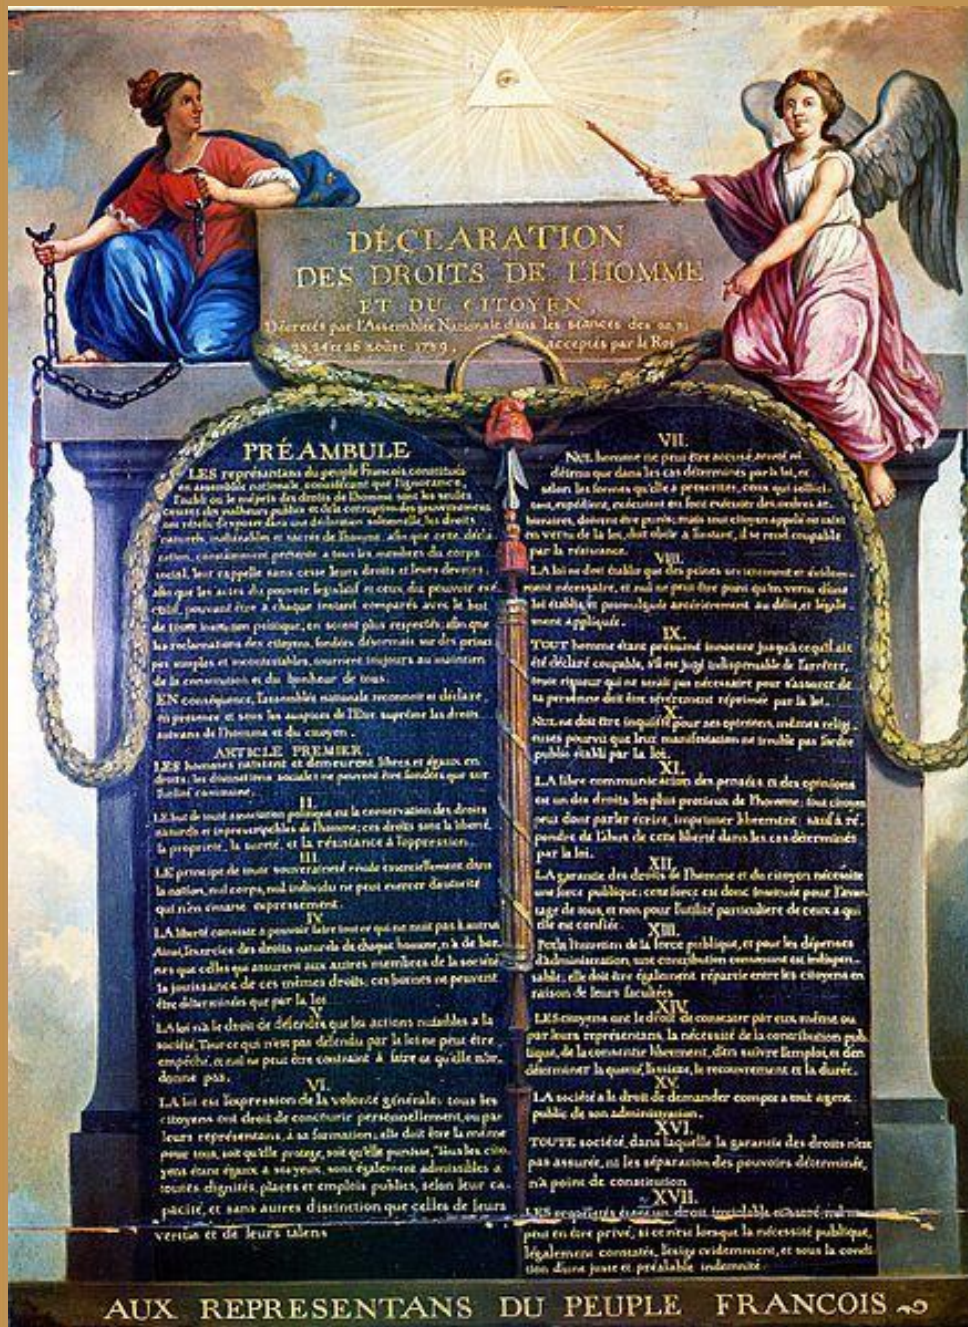 DÉCLARATION
DES DROITS DE L'HOMME
ET DU CITOYEN
Décretés par l'Assemblée Nationale dans les séances des 20, 21
23, 24 et 26 aoûst 1789, acceptés par le Roi
PRÉAMBULE
LES représentans du peuple François, constitués
en assemblée nationale, considérant que l'ignorance,
l'oubli ou le mépris des droits de l'homme sont les seules
causes des malheurs publics et de la corruption des gouvernemens
ont résolu d'exposer dans une déclaration solemnelle, les droits
naturels, inaliénables et sacrés de l'homme, afin que cette décla
ration, constamment présente a tous les membres du corps
social, leur rappelle sans cesse leurs droits et leurs devoirs,
afin que les actes du pouvoir législatif et ceux du pouvoir exé
cutif, pouvant être a chaque instant comparés avec le but
de toute institution politique, en soient plus respectés; afin que
les réclamations des citoyens, fondées désormais sur des princi
pes simples et incontestables, tournent toujours au maintien
de la constitution et du bonheur de tous.
EN conséquence, l'assemblée nationale reconnoit et déclare
en presence et sous les auspices de l'Etre suprême les droits
suivans de l'homme et du citoyen.
ARTICLE PREMIER.
LES hommes naissent et demeurent libres et égaux en
droits; les distinctions sociales ne peuvent être fondées que sur
l'utilité commune.
II.
LE but de toute association politique est la conservation des droits
naturels et inprescriptibles de l'homme; ces droits sont la liberté,
la propriété, la sureté, et la résistance à l'oppression.
III.
LE principe de toute souveraineté réside essentiellement dans
la nation, nul corps, nul individu ne peut exercer d'autorité
qui n'en émane expressement.
IV.
LA liberté consiste a pouvoir faire tout ce qui ne nuit pas à autrui
Ainsi, l'exercice des droits naturels de chaque homme, n'a de bor
nes que celles qui assurent aux autres membres de la société
la jouissance de ces mêmes droits; ces bornes ne peuvent
être déterminées que par la loi
V.
LA loi n'a le droit de défendre que les actions nuisibles a la
société. Tout ce qui n'est pas défendu par la loi ne peut être
empêché, et nul ne peut être contraint à faire ce qu'elle n'or
donne pas.
VI.
LA loi est l'expression de la volonté générale; tous les
citoyens ont droit de concourir personnellement, ou par
leurs représentans, à sa formation; elle doit être la même
pour tous, soit qu'elle protege, soit qu'elle punisse, Tous les cito
yens étant égaux à ses yeux, sont également admissibles a
toutes dignités, places et emplois publics, selon leur ca
pacité, et sans autres distinction que celles de leurs
vertus et de leurs talens
VII.
NUL homme ne peut être accusé, arreté, ni
détenu que dans les cas déterminés par la loi, et
selon les formes qu'elle a prescrites, ceux qui sollici
tent, expédient, exécutent ou font exécuter des ordres ar
bitraires, doivent être punis; mais tout citoyen appelé ou saisi
en vertu de la loi, doit obéir a l'instant, il se rend coupable
par la résistance.
VIII.
LA loi ne doit établir que des peines strictement et évidem
ment nécessaire, et nul ne peut être puni qu'en vertu d'une
loi établie et promulguée antérieurement au délit, et légale
ment appliquée.
IX.
TOUT homme étant présumé innocent jusqu'à ce qu'il ait
été déclaré coupable, s'il est jugé indispensable de l'arrêter,
toute rigueur qui ne serait pas nécessaire pour s'assurer de
sa personne doit être sévèrement réprimée par la loi.
X.
NUL ne doit être inquiété pour ses opinions, mêmes religi
euses pourvu que leur manifestation ne trouble pas l'ordre
public établi par la loi.
XI.
LA libre communication des pensées et des opinions
est un des droits les plus precieux de l'homme; tout citoyen
peut donc parler écrire, imprimer librement: sauf à ré
pondre de l'abus de cette liberté dans les cas déterminés
par la loi.
XII.
LA garantie des droits de l'homme et du citoyen nécessite
une force publique; cette force est donc instituée pour l'avan
tage de tous, et non pour l'utilité particulière de ceux a qui
elle est confiée.
XIII.
Pour l'entretien de la force publique, et pour les dépenses
d'administration, une contribution commune est indispen
sable; elle doit être également répartie entre les citoyens en
raison de leurs facultées
XIV.
LES citoyens ont le droit de constater par eux même ou
par leurs représentans, la nécessité de la contribution pub
lique, de la consentir librement, d'en suivre l'emploi, et d'en
déterminer la quotité, l'assiette, le recouvrement et la durée.
XV.
LA société a le droit de demander compte a tout agent
public de son administration.
XVI.
TOUTE société, dans laquelle la garantie des droits n'est
pas assurée, ni les séparation des pouvoirs déterminée,
n'a point de constitution
XVII.
LES propriétés étant un droit inviolable et sacré, nul ne
peut en être privé, si ce n'est lorsque la nécessité publique,
légalement constatée, l'exige evidemment, et sous la condi
tion d'une juste et préalable indemnité
AUX REPRESENTANS DU PEUPLE FRANCOIS